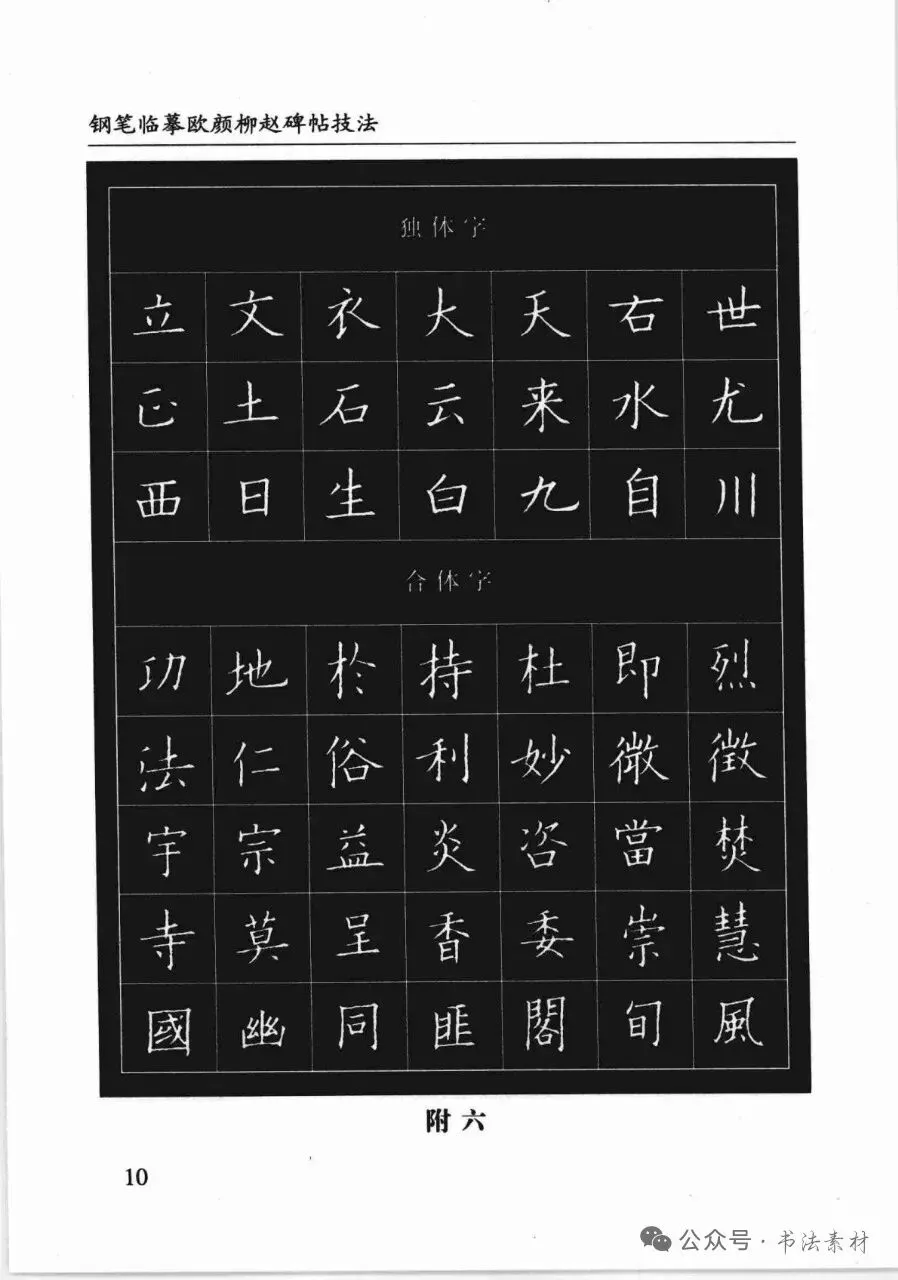 钢笔临摹欧颜柳赵碑帖技法
独体字
立 文 衣 大 天 右 世
正 土 石 云 来 水 尤
西 日 生 白 九 自 川
合体字
功 地 於 持 杜 即 烈
法 仁 俗 利 妙 微 徵
宇 宗 益 炎 咨 當 焚
寺 莫 呈 香 委 崇 慧
國 幽 同 匪 閣 旬 風
附六
10
公众号·书法素材